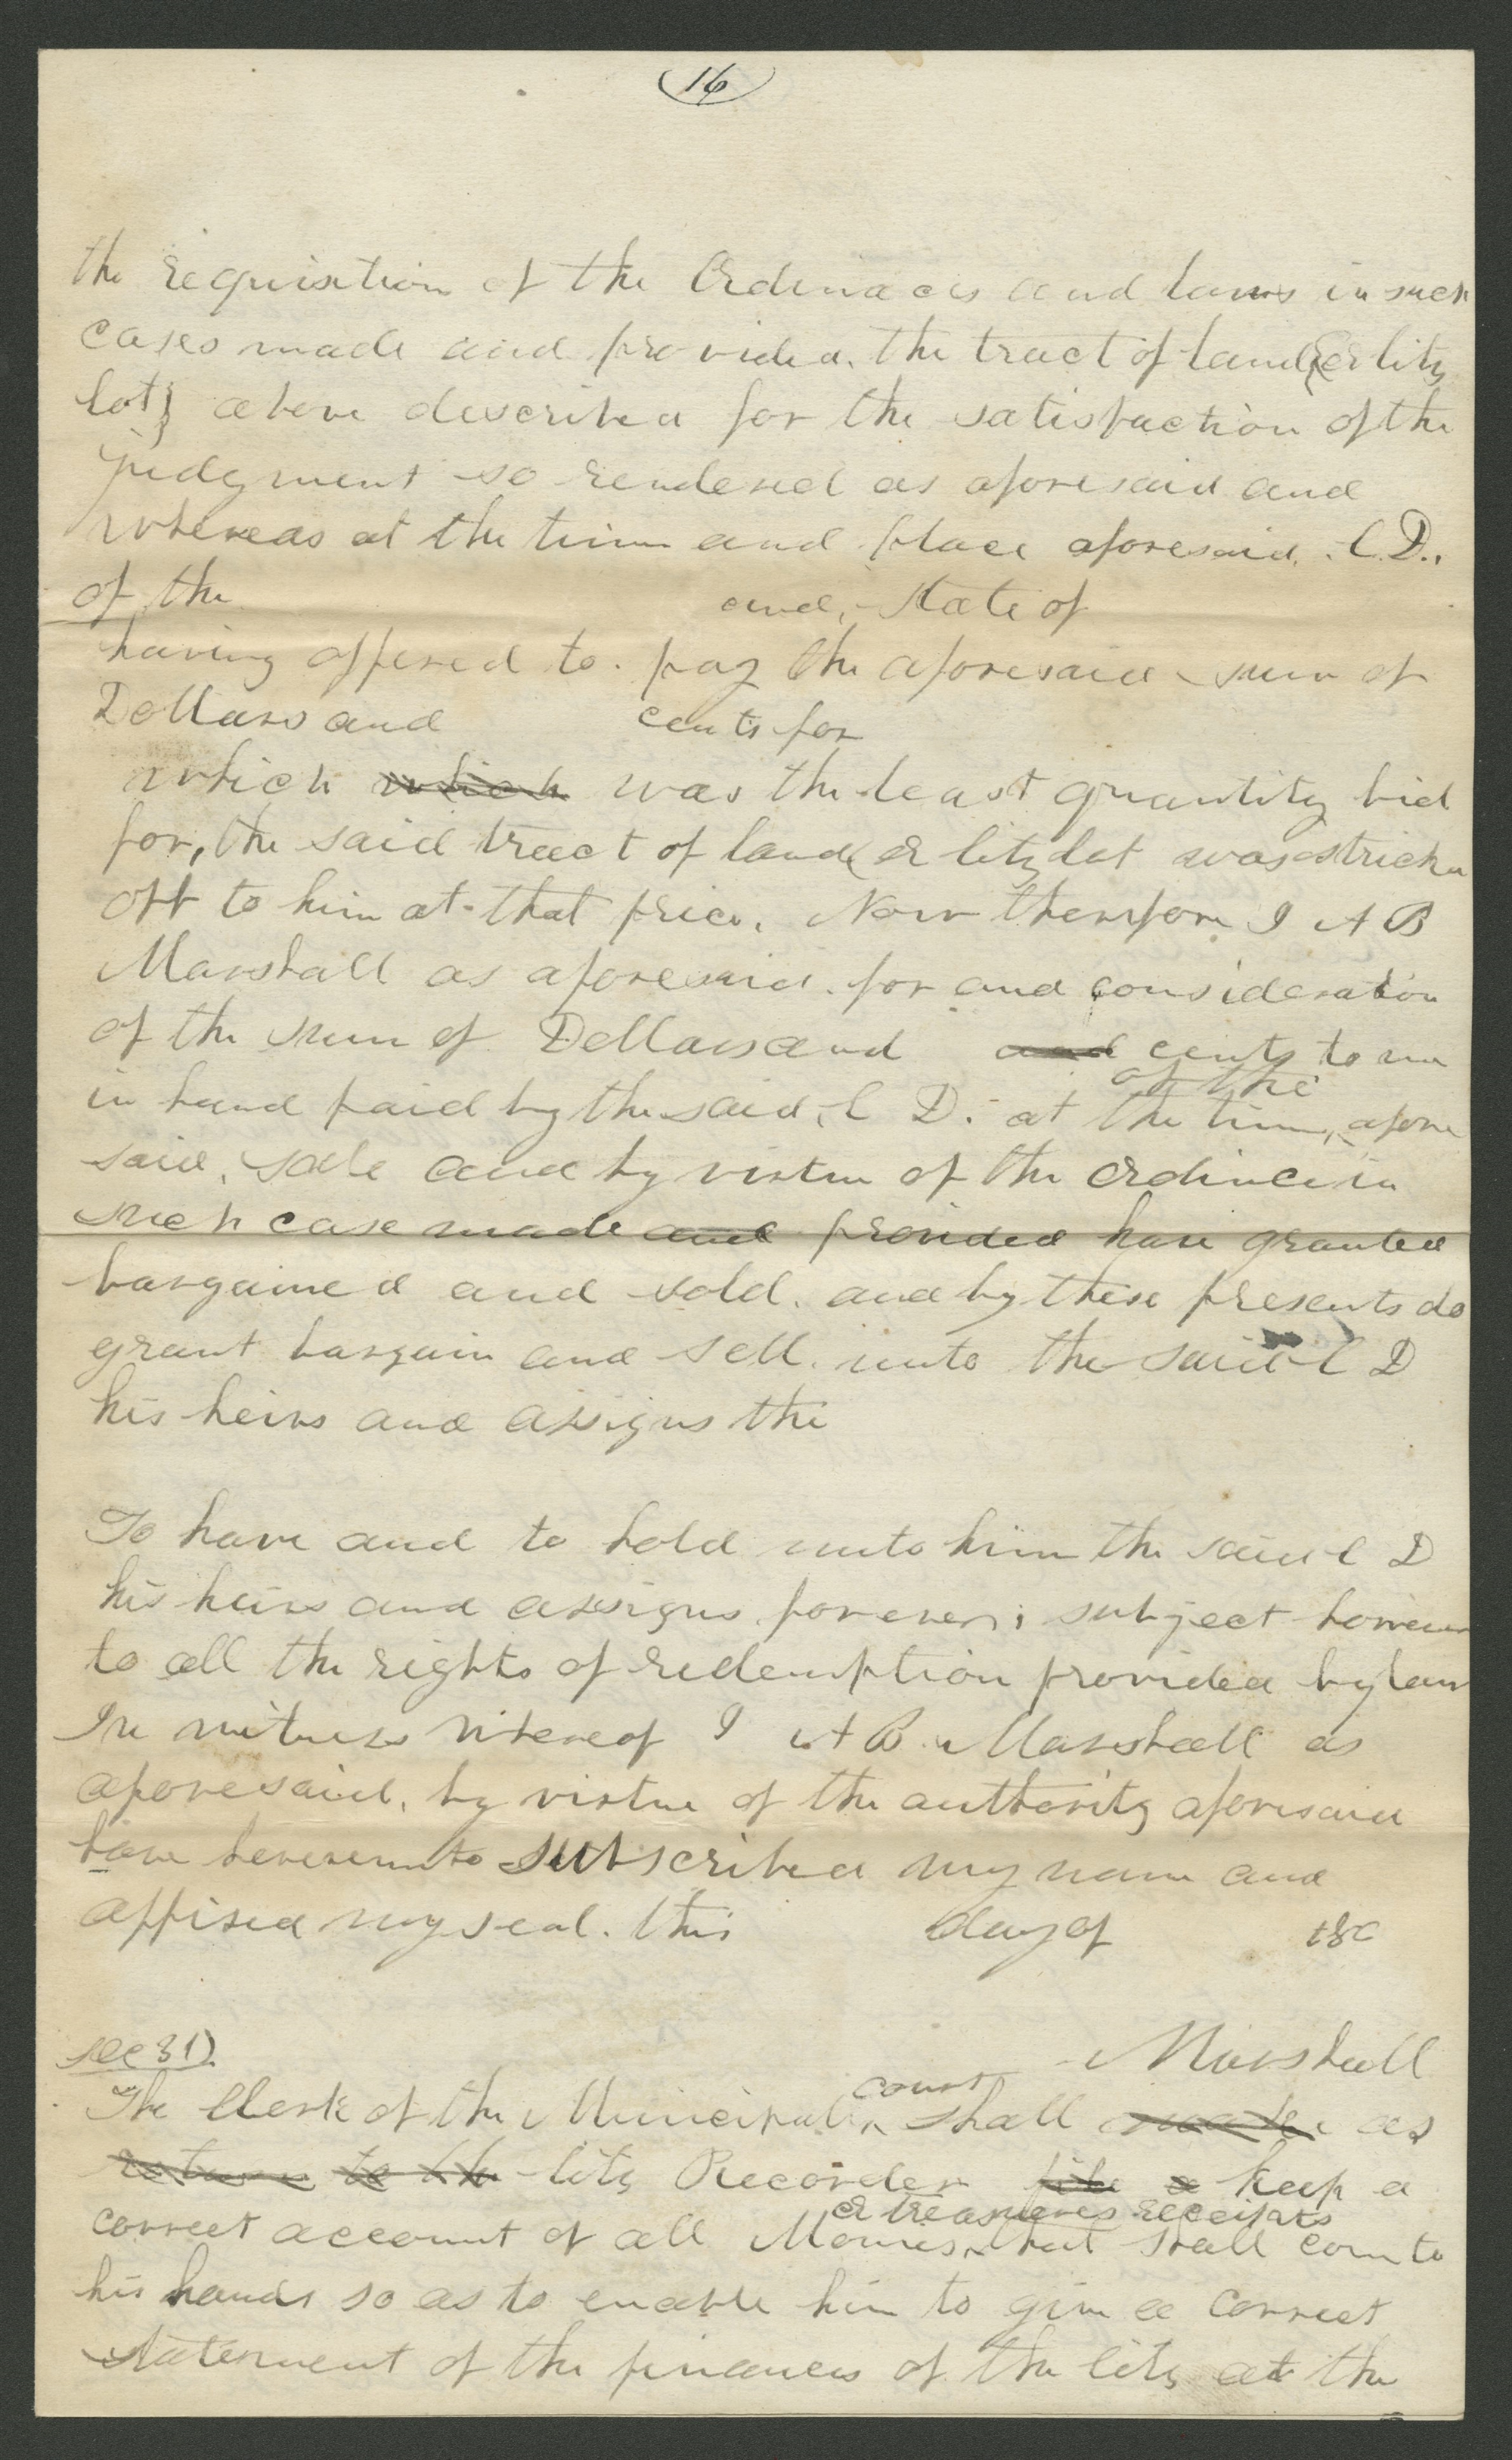 16
the requisition of the Ordinaces and laws in such
cases made and provided. the tract of land (or City
lot) above described for the satisfaction of the
judgment so rendered as aforesaid and
whereas at the time and place aforesaid. C. D.
of the and, State of
having offered to pay the aforesaid sum of
Dollars and cents for
which which was the least quantity bid
for, the said tract of land (or City lot was stricken
off to him at that price. Now therefore I A B
Marshall as aforesaid. for and consideration
of the sum of Dollars and and cents to me
of the
in hand paid by the said, C D. at the time, afore
said, sale and by virtue of the Ordince in
such case made and provided have granted
bargained and sold. and by these presents do
grant bargain and sell. unto the said C D
his heirs and assigns the
To have and to hold unto him the said C D
his heirs and assigns forever; subject however
to all the rights of redemption provided by law
In witness whereof I A B. Marshall as
aforesaid, by virtue of the authority aforesaid
have hereunto subscribed my name and
affixed my seal. this day of 18
Marshall
sec 31)
court
The Clerk of the Municipal shall make as
return to the City Recorder file a keep a
or treasurers receipts
correct account of all Monies that shall come to
his hands so as to enable him to give a correct
statement of the finances of the City at the